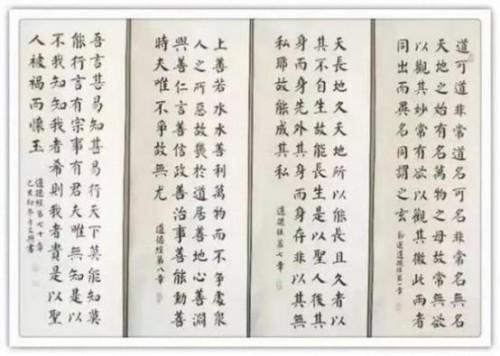 道可道非常道名可名非常名無名
天地之始有名萬物之母故常無欲
以觀其妙常有欲以觀其徼此两者
同出而異名同謂之玄
節選道德經第一章
天長地久天地所以能長且久者以
其不自生故能長生是以聖人後其
身而身先外其身而身存非以其無
私耶故能成其私
道德經第七章
上善若水水善利萬物而不争處衆
人之所惡故幾於道居善地心善淵
與善仁言善信政善治事善能動善
時夫唯不争故無尤
道德經第八章
吾言甚易知甚易行天下莫能知莫
能行言有宗事有君夫唯無知是以
不我知知我者希則我者貴是以聖
人被褐而懷玉
道德經第七十章